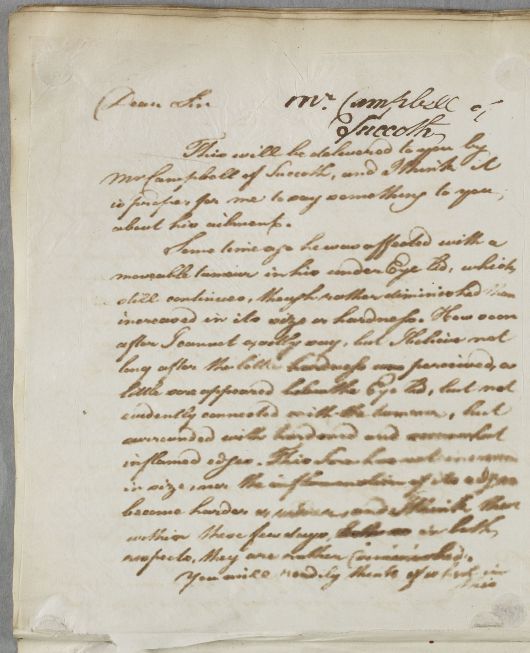 Dear Sir Mr. Campbell of
Succoth
This will be delivered to you by
Mr Campbell of Succoth, and I think it
is proper for me to say something to you
about his ailment.
Some time ago he was affected with a
moveable tumour in his under Eye lid, which
still continues, though rather diminished than
increased in its size or hardness. How soon
after I cannot exactly say, but I believe not
long after the little hardness was perceived, a
little sore appeared below the Eye lid, but not
evidently connected with the tumour, but
surrounded with hardened and somewhat
inflamed edges. This Sore has not
in size, nor the inflammation of its edges
become harder or and I think that
within these few days, in both
respects, they are rather diminished.
You will readily think of
this